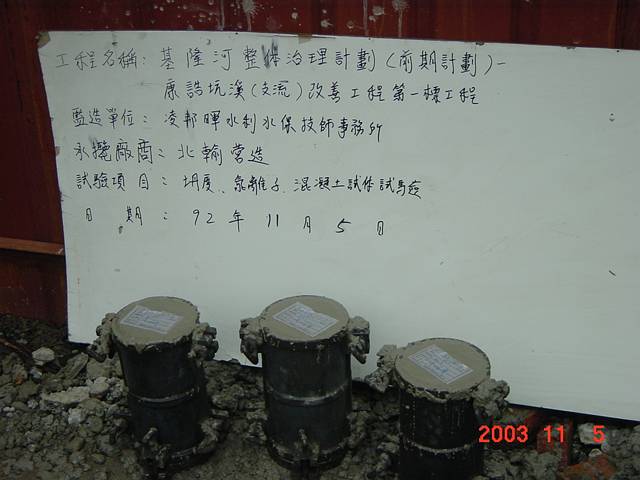 工程名稱：基隆河整体治理計劃（前期計劃）－
康誥坑溪（支流）改善工程第一標工程
監造單位：凌邦暉水利水保技師事務所
承攬廠商：北輸營造
試驗項目：坍度、氯離子、混凝土試体試驗
日期：92年11月5日
2003 11 5